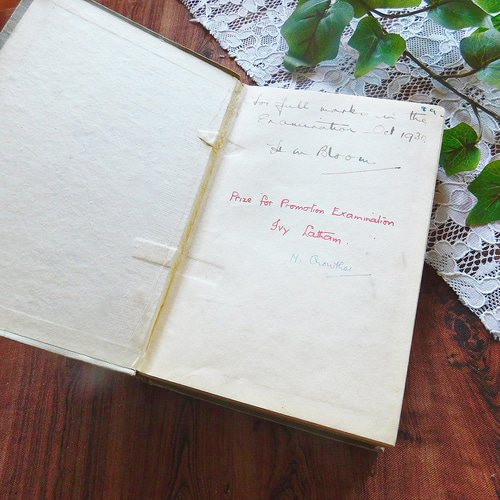 for full marks in the
Examination Oct 193
Bloom
Prize for Promotion Examination
Ivy Latham.
H. Crowther